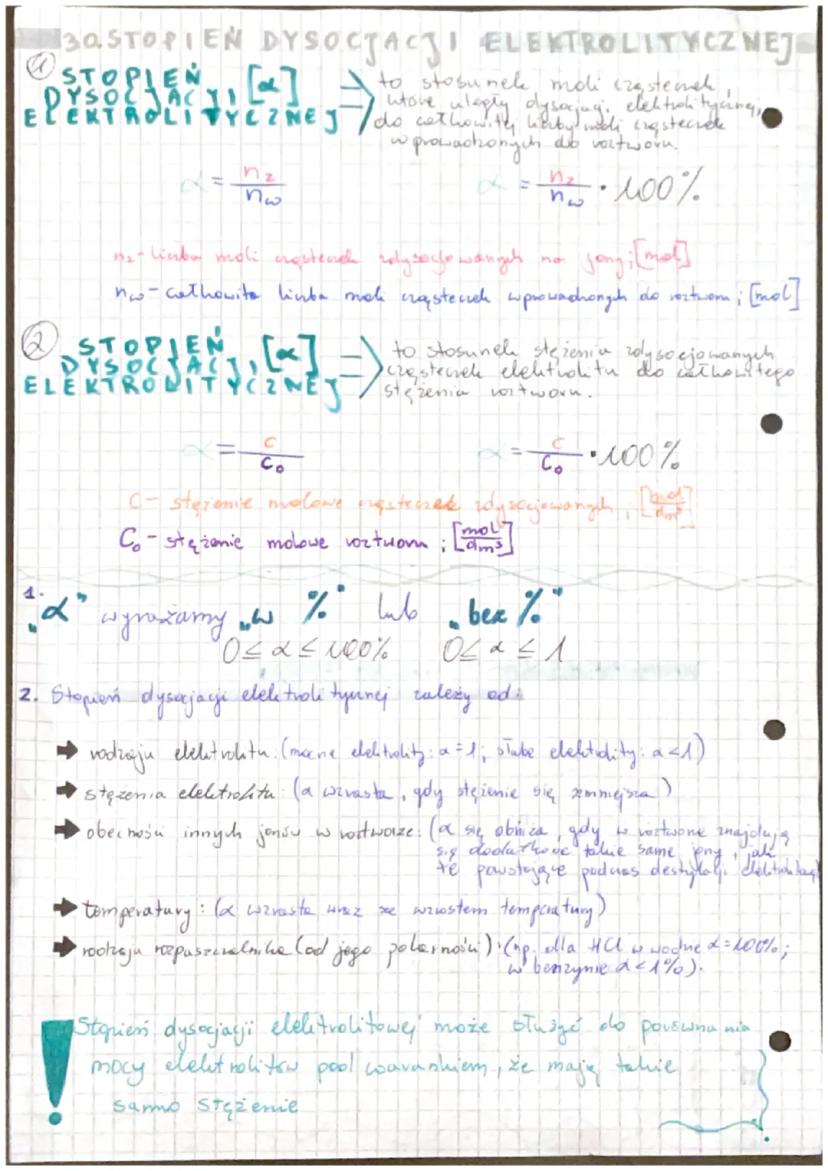 30. STOPIEŃ DYSOCJACJI ELEKTROLITYCZNEJ
1 STOPIEŃ DYSOCJACJI [α] ELEKTROLITYCZNEJ ⇒
to stosunek moli cząsteczek,
które uległy dysocjacji elektrolitycznej,
do całkowitej liczby moli cząsteczek
wprowadzonych do roztworu.
α = nz/nw
α = nz/nw · 100%
nz - liczba moli cząsteczek zdysocjowanych na jony; [mol]
nw - całkowita liczba moli cząsteczek wprowadzonych do roztworu; [mol]
2 STOPIEŃ DYSOCJACJI [α] ELEKTROLITYCZNEJ ⇒
to stosunek stężenia zdysocjowanych
cząsteczek elektrolitu do całkowitego
stężenia roztworu.
α = c/c₀
α = c/c₀ · 100%
C - stężenie molowe cząsteczek zdysocjowanych; [mol/dm³]
C₀ - stężenie molowe roztworu; [mol/dm³]
1. „α” wyrażamy „w %” lub „bez %”
0 ≤ α ≤ 100% 0 ≤ α ≤ 1
2. Stopień dysocjacji elektrolitycznej zależy od:
➡ rodzaju elektrolitu: (mocne elektrolity: α=1; słabe elektrolity: α<1)
➡ stężenia elektrolitu: (α wzrasta, gdy stężenie się zmniejsza)
➡ obecności innych jonów w roztworze: (α się obniża, gdy w roztworze znajdują
się dodatkowe takie same jony, jak
te powstające podczas destylacji elektrolitu)
➡ temperatury: (α wzrasta wraz ze wzrostem temperatury)
➡ rodzaju rozpuszczalnika (od jego polarności): (np. dla HCl w wodzie α=100%;
w benzynie α<1%).
! Stopień dysocjacji elektrolitowej może służyć do porównania
mocy elektrolitów pod warunkiem, że mają takie
samo stężenie